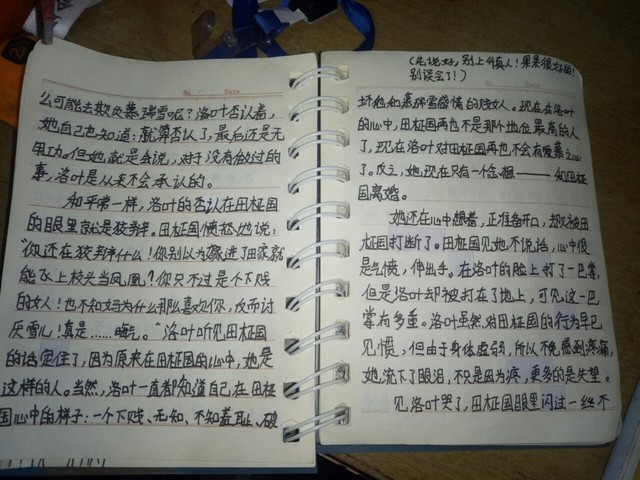 No.
Date.
么可能去欺负慕瑞雪呢？洛叶否认着，
她自己也知道：就算否认了，最后还是无
用功。但她就是会说，对于没有做过的
事，洛叶是从来不会承认的。
和平常一样，洛叶的否认在田柾国
的眼里就是狡辩。田柾国愤怒地说：
“你还在狡辩什么！你别以为嫁进了田家就
能飞上枝头当凤凰？你只不过是个下贱
的女人！也不知妈为什么那么喜欢你，反而讨
厌雪儿！真是……晦气。”洛叶听见田柾国
的话怔住了，因为原来在田柾国的心中，她是
这样的人。当然，洛叶一直都知道自己在田柾
国心中的样子：一个下贱、无知、不知羞耻、破
（先说好，别上升真人！果果很好的！
别误会了！）
No.
Date.
坏他和慕瑞雪感情的贱女人。现在在洛叶
的心中，田柾国再也不是那个地位最高的人
了，现在洛叶对田柾国再也不会有爱慕之心
了。反之，她现在只有一个念头——和田柾
国离婚。
她还在心中想着，正准备开口，却被田
柾国打断了。田柾国见她不说话，心中很
是气愤，伸出手。在洛叶的脸上打了一巴掌，
但是洛叶却被打在了地上，可见这一巴
掌有多重。洛叶虽然对田柾国的行为早已
见惯，但由于身体虚弱，所以不免感到疼痛，
她流下了眼泪，不只是因为疼，更多的是失望。
见洛叶哭了，田柾国眼里闪过一丝不